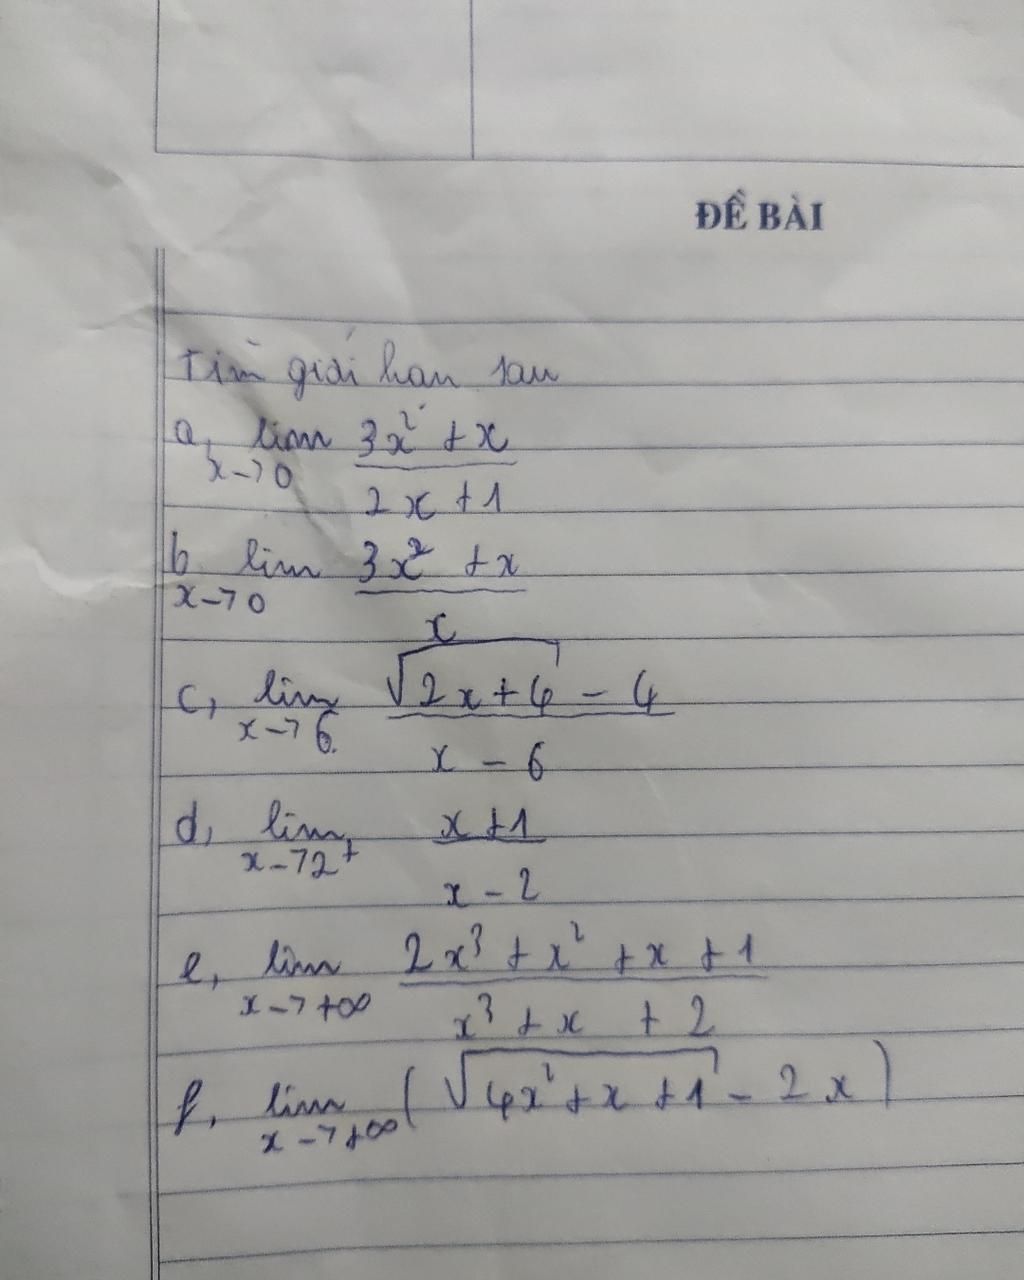 ĐỀ BÀI
Tìm giới hạn sau
a, lim 3x² + x
x→0 2x + 1
b lim 3x² + x
x→0 x
c, lim √2x+4 - 4
x→6 x - 6
d, lim x+1
x→2⁺ x - 2
e, lim 2x³ + x² + x + 1
x→+∞ x³ + x + 2
f, lim (√4x² + x + 1 - 2x)
x→+∞